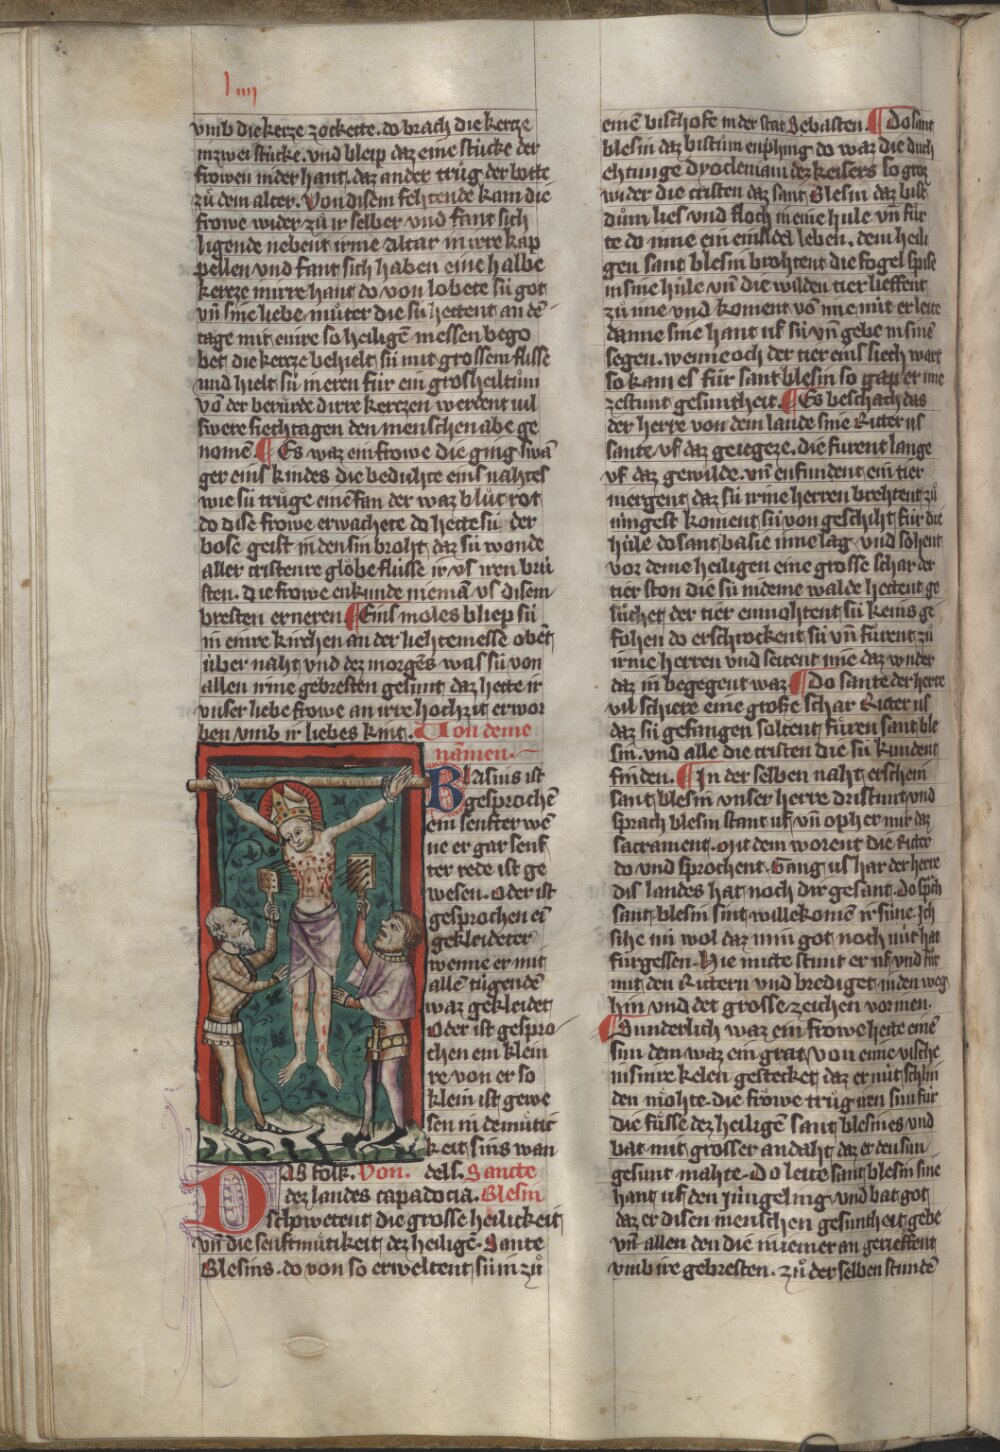 liiij
vmb die kerze zockette. do brach die kerze
in zwei stücke. vnd bleip daz eine stücke der
frowen in der hant. daz ander trůg der botte
zů dem alter. Von disem fehtende kam die
frowe wider zů ir selber vnd fant sich
ligende nebent irme altar in irre kap
pellen vnd fant sich haben eine halbe
kerze in irre hant do von lobete sü got
vn̄ sine liebe můter die sü hettent an dē
tage mit einre so heiligē messen bego
bet die kerze behielt sü mit grossem flisse
vnd hielt sü in eren für ein gros heiltům
vō der berůrde dirre kerzen werdent vil
swere siechtagen den menschen abe ge
nomē. ¶ Es waz ein frowe die ging swā
ger eins kindes die beduhte eins nahtes
wie sü trůge einē fan der waz blůt rot
do dise frowe erwachete do hette sü der
bose geist in den sin broht daz sü wonde
aller cristenre globe flüsse ir vs iren brü
sten. Die frowe enkunde nieman vs disem
bresten erneren ¶ Eins moles bliep sü
in einre kirchen an der liehtemesse obēt
über naht vnd dez morgēs was sü von
allen irme gebresten gesunt daz hette ir
vnser liebe frowe an irre hochzit erwor
ben vmb ir liebes kint. Von deme
namen.
Blasius ist
gesprochē
ein senfter wē
ne er gar senf
ter rede ist ge
wesen. Oder ist
gesprochen ei
gekleideter
wenne er mit
allē tůgendē
waz gekleidet
Oder ist gespro
chen ein klein
re von er so
klein ist gewe
sen in demůtit
keit sins wan
DAs folk. Von dels. Sancte
dez landes capadocia. Blesin
schowetent die grosse heilickeit
vn̄ die senftmůtikeit dez heiligē. Sante
Blesins. do von so erweltent sü in zů
einē bischofe in der stat Sebasten. ¶ Do sant
blesin daz bistům enphing do waz die durch
ehtunge dyocleniani dez keisers so groz
wider die cristen daz sant Blesin daz bis
dům lies vnd floch in eine hüle vn̄ fůr
te do inne ein einsidel leben. dem heili
gen sant blesin brohtent die fogel spise
in sine hüle vn̄ die wilden tier lieffent
zů ime vnd koment vō ime nüt er leite
danne sine hant uf sü vn̄ gebe in sinē
segen. wenne och der tier eins siech wart
so kam es für sant blesin so gap er ime
zestunt gesuntheit. ¶ Es beschach das
der herre von dem lande sine Ritter us
sante vf daz geiegeze. die fůrent lange
vf daz gewilde. vn̄ enfundent ein tier
niergent daz sü irme herren brehtent zů
iungest koment sü von geschiht für die
hüle do sant blasie inne lag vnd sohent
vor deme heiligen eine grosse schar der
tier ston die sü in deme walde hettent ge
sůchet der tier enmohtent sü keins ge
fohen do erschrockent sü vn̄ fůrent zů
irme herren vnd seitent ime daz wnder
daz in begegent waz ¶ Do sante der herre
vil schiere eine große schar Ritter us
daz sü gefangen soltent fůren sant ble
sin. vnd alle die cristen die sü kundent
finden. ¶ In der selben naht erschein
sant blesin vnser herre dristunt vnd
sprach blesin stant uf vn̄ opher mir daz
sacrament. Mit dem worent die Ritter
do vnd sprochent Gang us har der herre
dis landes hat noch dir gesant. do sprach
sant blesin sint willekomē ir süne. Ich
sihe nu wol daz min got noch nüt hat
fürgessen. Hie mitte stunt er uf vnd fůr
mit den Rittern vnd brediget in den weg
hin vnd det grosse zeichen vor inen.
¶ Sunderlich waz ein frowe hette einē
sun dem waz ein grat von eime vische
in sinre kelen gestecket daz er nüt schlin
den mohte. die frowe trůg iren sun für
die fůsse dez heiligē sant blesines vnd
bat mit grosser andaht daz er den sun
gesunt mahte. Do leite sant blesin sine
hant uf den jüngeling vnd bat got
daz er disen menschen gesuntheit gebe
vn̄ allen den die in iemer an gerieffent
vmb ire gebresten. zů der selben stundē